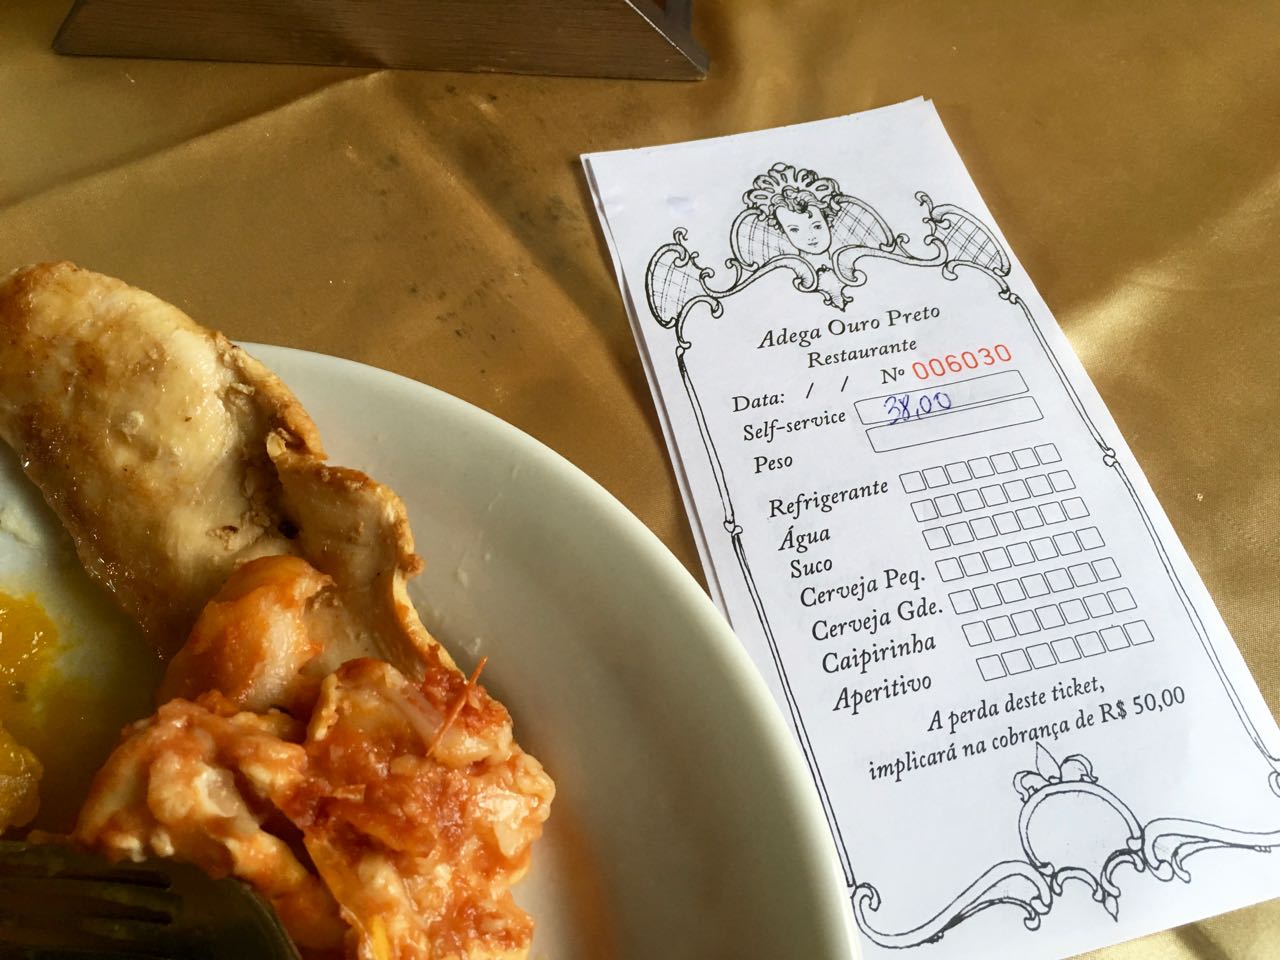 Adega Ouro Preto
Restaurante
Nº 006030
Data: / /
Self-service 38,00
Peso
Refrigerante
Água
Suco
Cerveja Peq.
Cerveja Gde.
Caipirinha
Aperitivo
A perda deste ticket,
implicará na cobrança de R$ 50,00